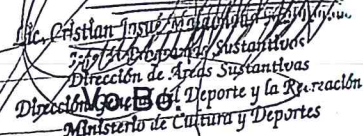 Lic. Cristian Josué
Programas Sustantivos
Dirección de Áreas Sustantivas
Dirección del Deporte y la Recreación
Vo.Bo.
Ministerio de Cultura y Deportes